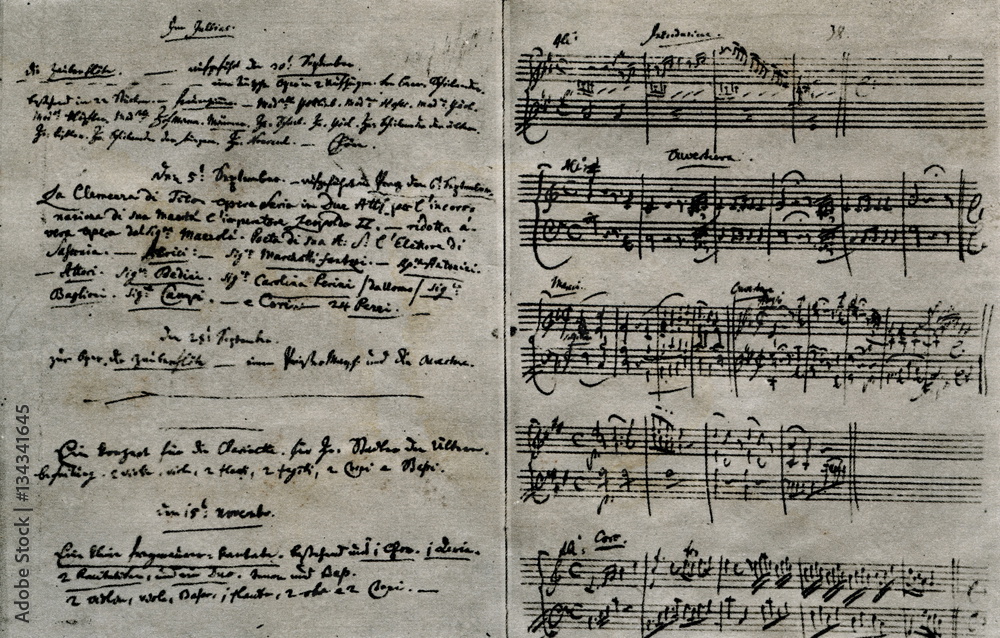 Im Jullius.
die Zauberflöte. — aufgeführt den 30t September.
— eine teutsche Oper in 2 Aufzügen. von Eman. Schikaneder.
bestehend in 22 Stücken. — Frauenzimmer. — Mad:selle Gottlieb. Mad:me Hofer. Mad:me Görl.
Mad:me Klöpfler. Mad:selle Hofmann. Männer. Hr: Schack. Hr: Görl. Hr: Schikaneder der ältere.
Hr: Kistler. Hr: Schikaneder der Jüngere. Hr: Nouseul. — Chöre.
den 5t September. — aufgeführt in Prag den 6t September.
La Clemenza di Tito. opera Seria in Due Atti. per l'incoro-
nazione di sua Maestà l'imperatore Leopoldo II. — ridotta à
vera opera dal Sigre Mazzolà. Poeta di sua A: S: l'Elettore di
Sassonia. — Attrici: — Sigra Marchetti fantozi. — Sigra Antonini.
— Attori. Sigre Bedini. Sigra Carolina Perini / da Uomo / Sigre
Baglioni. Sigre Campi. — e Cori. — 24 Pezzi.
den 28t September.
zur Oper. die Zauberflöte — einen Priester Marsch und die Ouverture.
Ein Konzert für die Clarinette. für Hr: Stadler den Ältern.
begleitung. 2 violini, viole, 2 flauti, 2 fagotti, 2 Corni e Bassi.
den 15t Novembr.
Eine kleine freymaurer-kantate. bestehend aus 1 Chor. 1 Aria.
2 Recitativen, und ein Duo. tenor und Bass.
2 violini, viola, Basso, 1 flauto, 2 oboe e 2 Corni. —
All:
Introduzione.
38.
Ouvertura.
Marcia.
Ouvertura
All: Coro.
Adobe Stock | #134341645